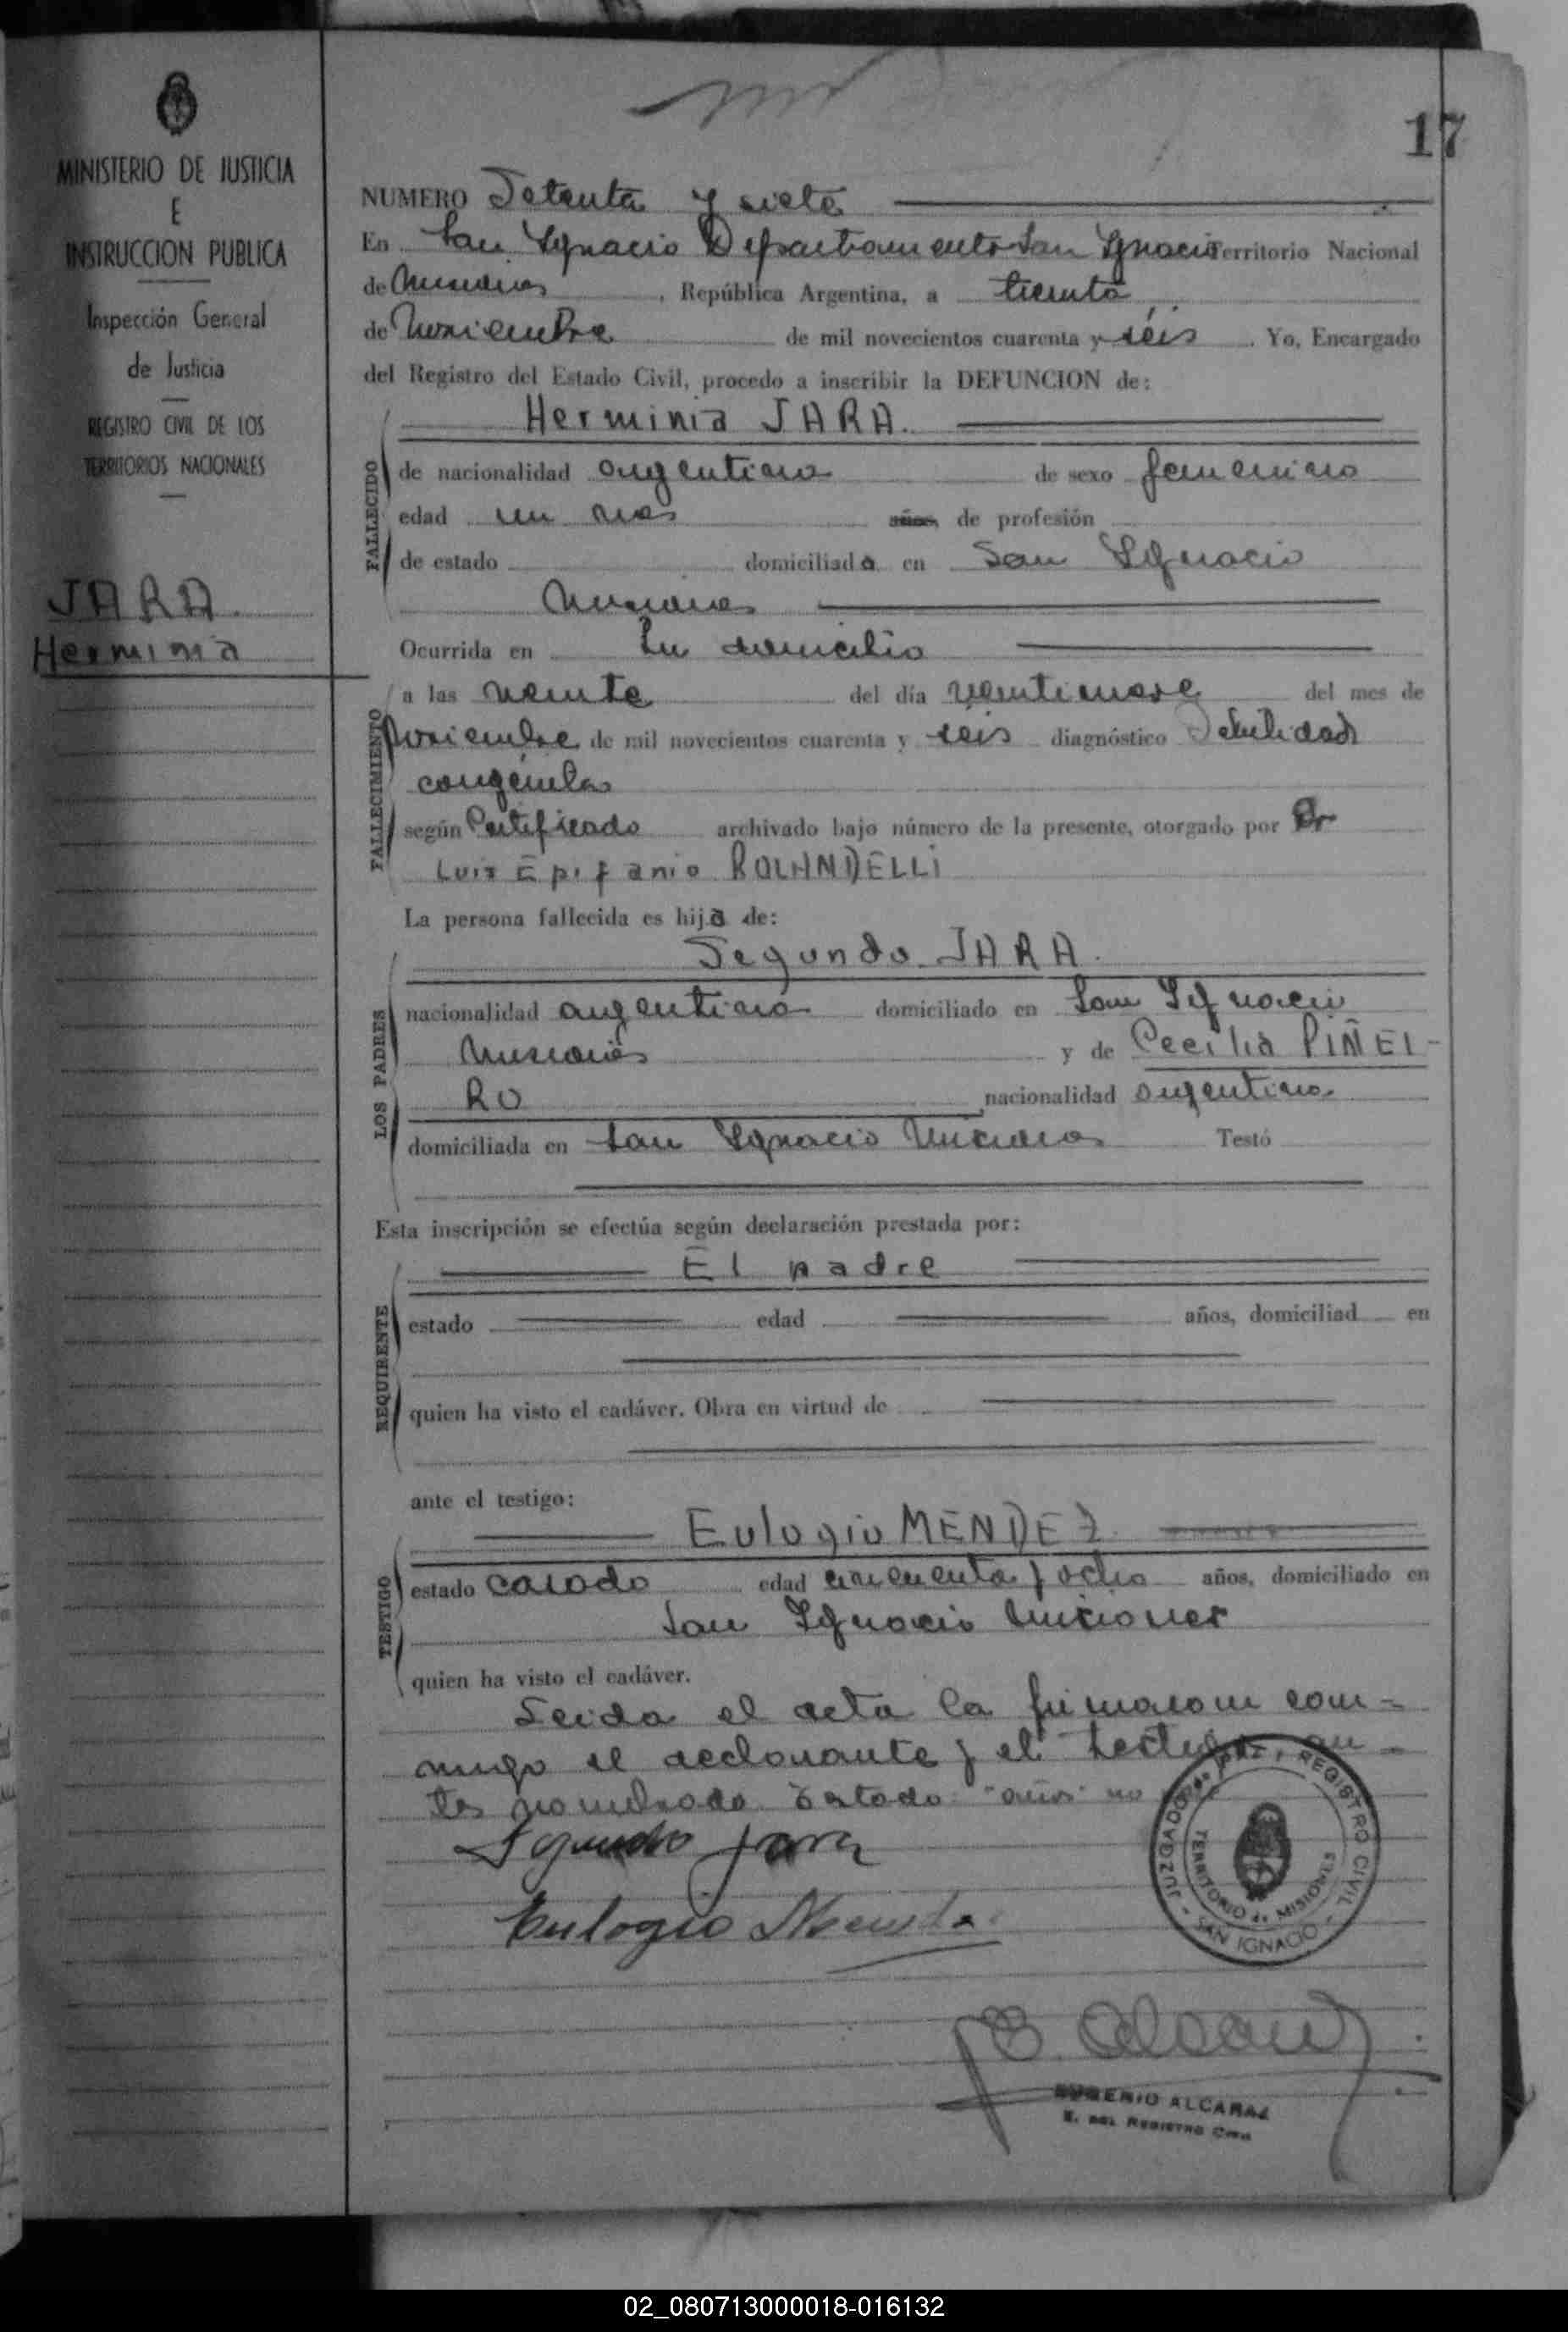 17
MINISTERIO DE JUSTICIA
E
INSTRUCCION PUBLICA
Inspección General
de Justicia
REGISTRO CIVIL DE LOS
TERRITORIOS NACIONALES
JARA
Herminia
NUMERO Setenta y siete
En San Ignacio Departamento San Ignacio Territorio Nacional
de Misiones, República Argentina, a treinta
de Noviembre de mil novecientos cuarenta y séis. Yo, Encargado
del Registro del Estado Civil, procedo a inscribir la DEFUNCION de:
Herminia JARA.
FALLECIDO
de nacionalidad argentina de sexo femenino
edad un mes años, de profesión
de estado domiciliada en San Ignacio
Misiones
Ocurrida en Su domicilio
FALLECIMIENTO
a las veinte del día veintinueve del mes de
Noviembre de mil novecientos cuarenta y seis diagnóstico Debilidad
congénita
según Certificado archivado bajo número de la presente, otorgado por Dr
Luis Epifanio ROLANDELLI
La persona fallecida es hija de:
Segundo JARA.
LOS PADRES
nacionalidad argentino domiciliado en San Ignacio
Misiones y de Cecilia PIÑEI-
RO nacionalidad argentina
domiciliada en San Ignacio Misiones Testó
Esta inscripción se efectúa según declaración prestada por:
El padre
REQUIRENTE
estado edad años, domiciliad en
quien ha visto el cadáver. Obra en virtud de
ante el testigo:
Eulogio MENDEZ
TESTIGO
estado casado edad cincuenta y ocho años, domiciliado en
San Ignacio Misiones
quien ha visto el cadáver.
Leida el acta la firmaron con-
migo el declarante y el testigo an-
tes nombrado Testado: "años" no
Segundo Jara
Eulogio
JUZGADO de PAZ y REGISTRO CIVIL
TERRITORIO de MISIONES
- SAN IGNACIO -
E Alcaraz
EUGENIO ALCARAZ
E. DEL REGISTRO CIVIL
02_080713000018-016132